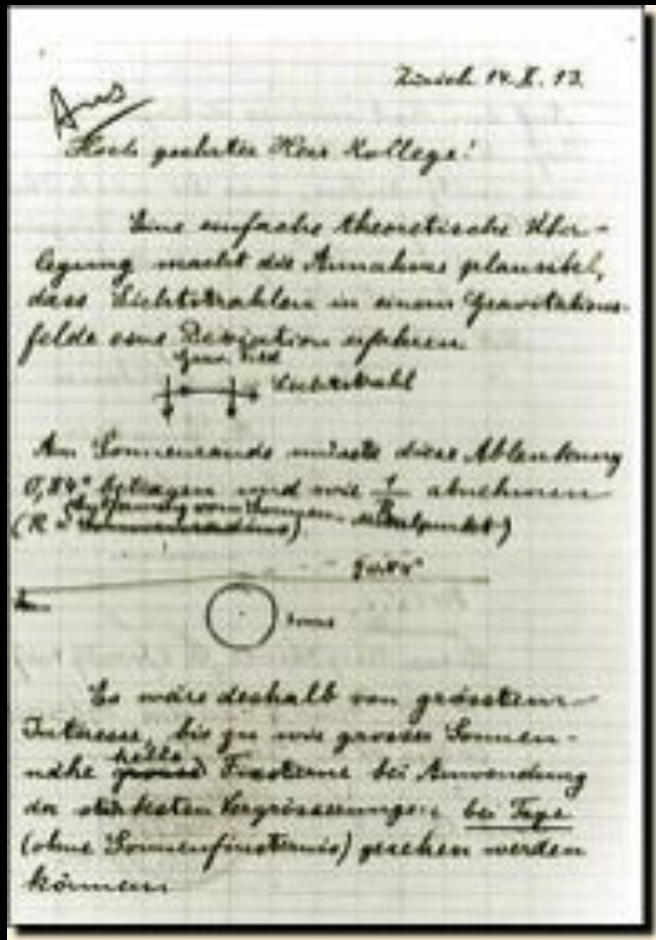 Zürich 14. X. 13.
Hoch geehrter Herr Kollege!
Eine einfache theoretische Über-
legung macht die Annahme plausibel,
dass Lichtstrahlen in einem Gravitations-
felde eine Deviation erfahren.
Grav. Feld
Lichtstrahl
Am Sonnenrande müsste diese Ablenkung
0,84" betragen und wie 1/R abnehmen
(R = Sonnenradius)
Entfernung vom Sonnen-Mittelpunkt)
0.84"
Sonne
Es wäre deshalb von grösstem
Interesse, bis zu wie grosser Sonnen-
nähe grosse helle Fixsterne bei Anwendung
der stärksten Vergrösserungen bei Tage
(ohne Sonnenfinsternis) gesehen werden
können.